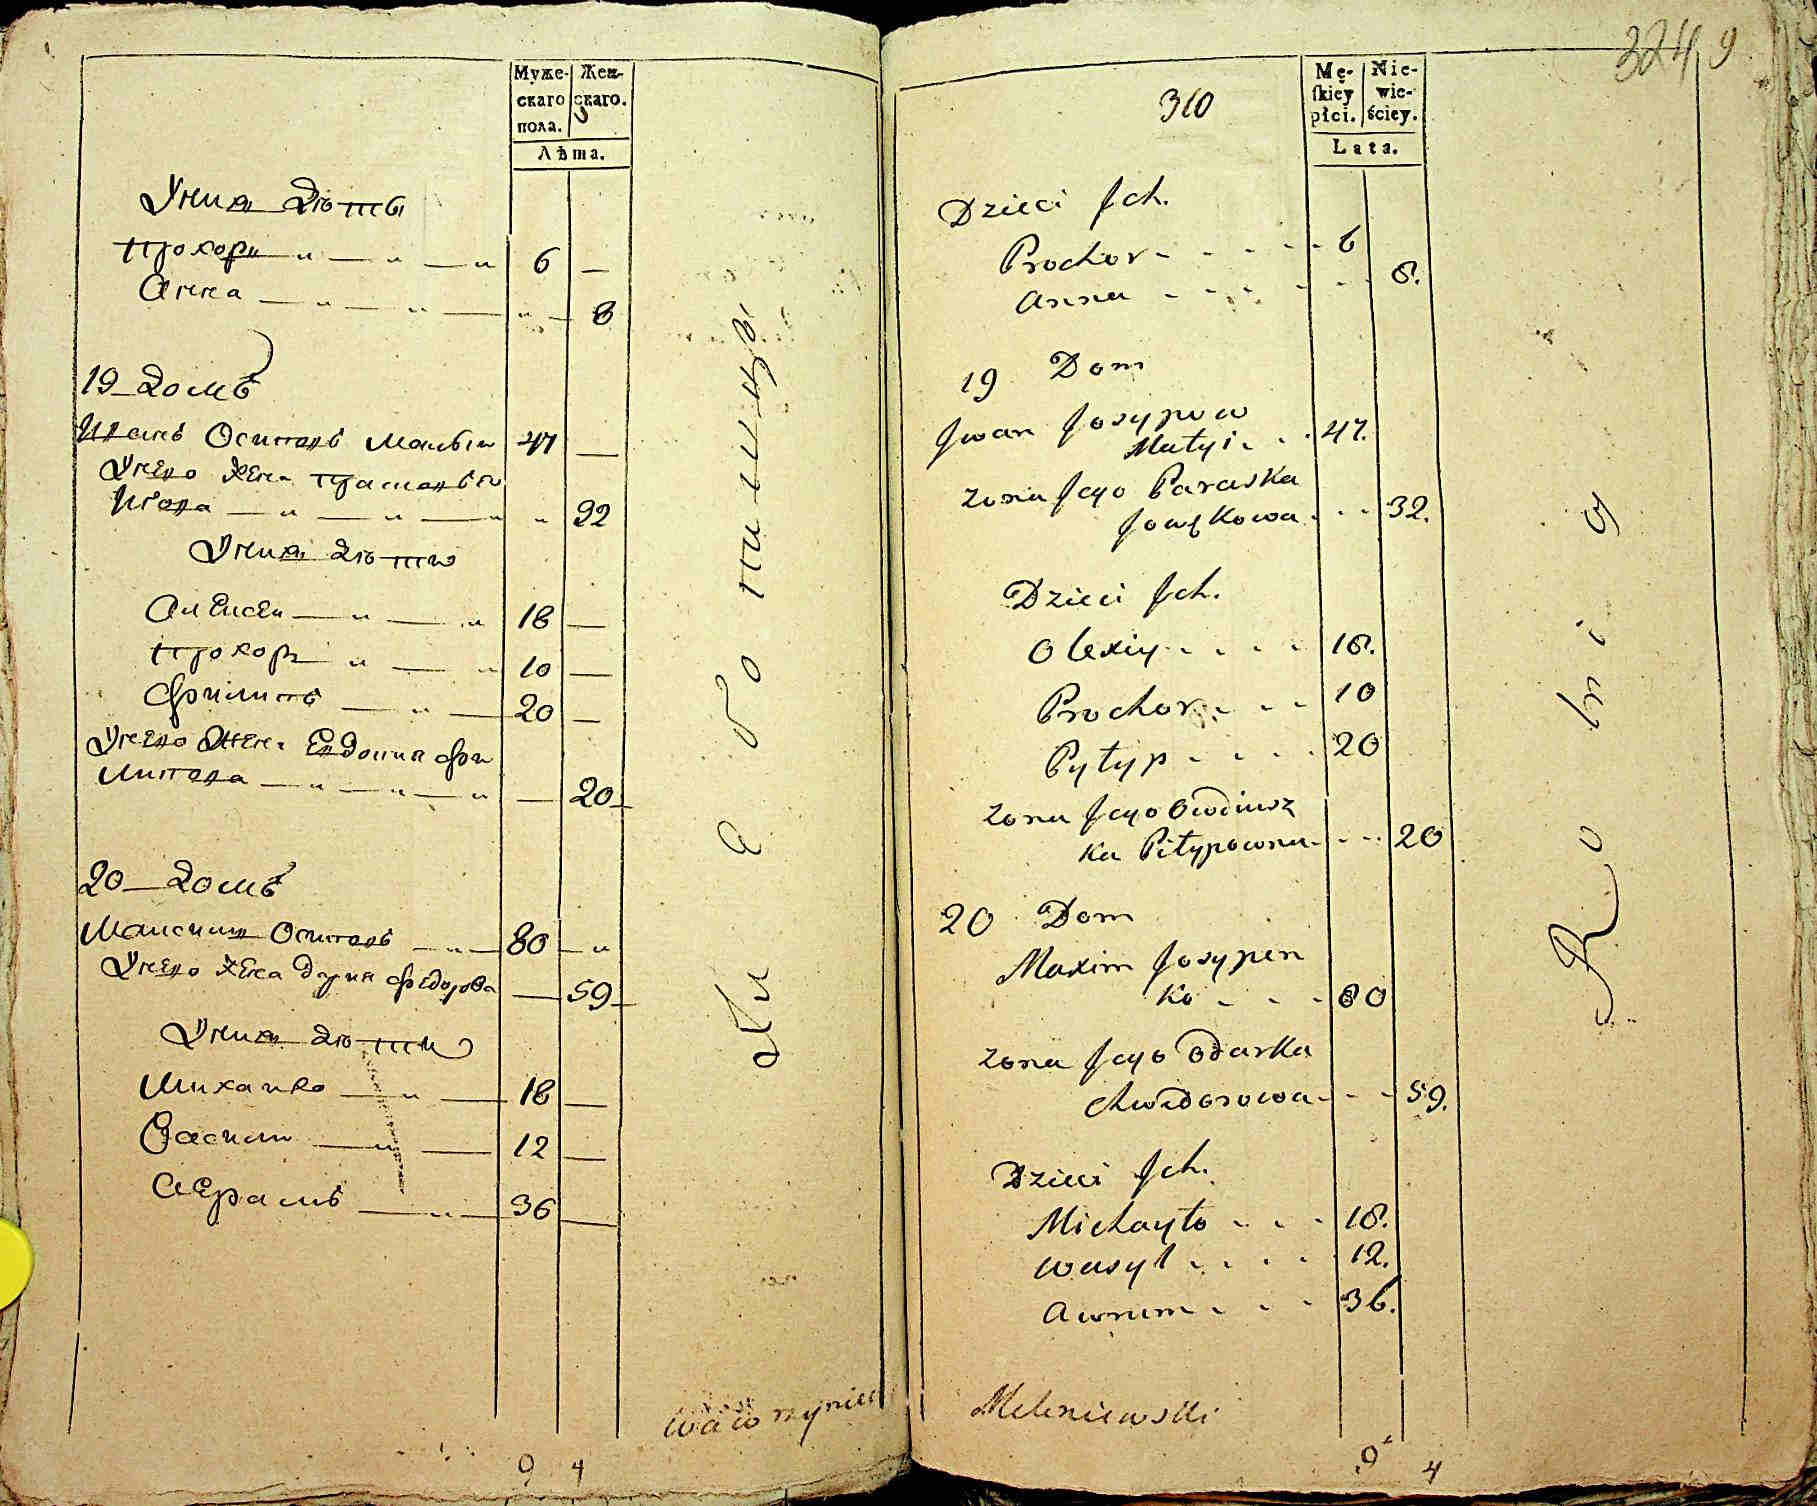 Муже-
скаго
пола.
Жен-
скаго.
Лѣта.
У них дѣты
Прохоръ 6 —
Анна — 8
19 домъ
Иванъ Осиповъ 47 —
У него жена
32
У них дѣти
Алексеи 18 —
Прохоръ 10 —
Филипъ 20 —
У него жена Евдокия Фи
липова — 20
20 домъ
Максим Осиповъ 80
У него жена Дария Федорова — 59
У них дѣти
Михаило 18 —
Васили 12 —
Аврамъ 36 —
9 4
324 9
310
Mę-
skiey
płci.
Nie-
wie-
ściey.
Lata.
Dzieci Jch.
Prochor 6
Anna 8.
19 Dom
Jwan Josypow
Matyi 47.
Zona Jego Paraska
32.
Dzieci Jch.
Olexiy 18.
Prochor 10
Pyłyp 20
Zona Jego Owdiusz
ka Piłypowna 20
20 Dom
Maxim Josypen
ko 80
Zona Jego Odarka
Chwedorowa 59.
Dzieci Jch.
Michayło 18.
Wasyl 12.
Awram 36.
Meleniewski
9 4